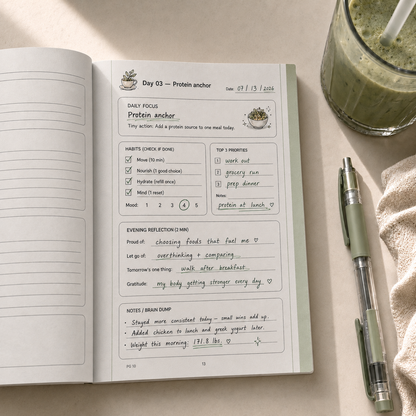 Day 03 — Protein anchor
Date: 07 / 13 / 2026
DAILY FOCUS
Protein anchor
Tiny action: Add a protein source to one meal today.
HABITS (CHECK IF DONE)
Move (10 min)
Nourish (1 good choice)
Hydrate (refill once)
Mind (1 reset)
Mood: 1 2 3 4 5
TOP 3 PRIORITIES
1 work out
2 grocery run
3 prep dinner
Notes:
protein at lunch ♡
EVENING REFLECTION (2 MIN)
Proud of: choosing foods that fuel me ♡
Let go of: overthinking + comparing
Tomorrow's one thing: walk after breakfast
Gratitude: my body getting stronger every day ♡
NOTES / BRAIN DUMP
• Stayed more consistent today – small wins add up.
• Added chicken to lunch and greek yogurt later.
• Weight this morning: 171.8 lbs. ♡